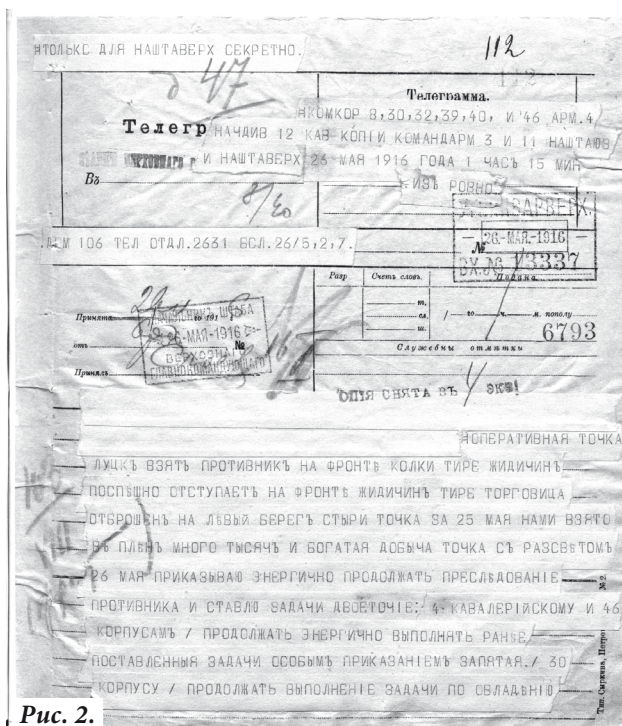 ТОЛЬКО ДЛЯ НАШТАВЕРХ СЕКРЕТНО.
112
47
112
Телеграмма.
НКОМКОР 8,30,32,39,40, И 46 АРМ.4/
Телегр НАЧДИВ 12 КАВ КОПІИ КОМАНДАРМ 3 И 11 НАШТАЮВ
И НАШТАВЕРХ 26 МАЯ 1916 ГОДА 1 ЧАСЪ 15 МИН
Въ ИЗЪ РОВНО
26.-МАЯ.-1916
№
106 ТЕЛ ОТДЛ.2631 БСЛ.26/5,2,7.
ВХ.№ 13337
Разр Счетъ словъ. Подана.
Принята го 191
НАЧАЛЬНИКЪ ШТАБА
26-МАЯ-1916
отъ №
ВЕРХОВНА
ГЛАВНОКОМАНДУЮЩАГО
Принялъ
т.
сл. го ч. м. пополу
ш.
6793
Служебны отмѣтки
ОПІЯ СНЯТА ВЪ 4 ЭКЗ!
ОПЕРАТИВНАЯ ТОЧКА
ЛУЦКЪ ВЗЯТЪ ПРОТИВНИКЪ НА ФРОНТѢ КОЛКИ ТИРЕ ЖИДИЧИНЪ
ПОСПѢШНО ОТСТУПАЕТЪ НА ФРОНТѢ ЖИДИЧИН ТИРЕ ТОРГОВИЦА
ОТБРОШЕН НА ЛѢВЫЙ БЕРЕГЪ СТЫРИ ТОЧКА ЗА 25 МАЯ НАМИ ВЗЯТО
ВЪ ПЛѢНЪ МНОГО ТЫСЯЧЪ И БОГАТАЯ ДОБЫЧА ТОЧКА СЪ РАЗСВѢТОМЪ
26 МАЯ ПРИКАЗЫВАЮ ЭНЕРГИЧНО ПРОДОЛЖАТЬ ПРЕСЛѢДОВАНІЕ
ПРОТИВНИКА И СТАВЛЮ ЗАДАЧИ ДВОЕТОЧІЕ: 4- КАВАЛЕРІЙСКОМУ И 46
КОРПУСАМЪ / ПРОДОЛЖАТЬ ЭНЕРГИЧНО ВЫПОЛНЯТЬ РАНѢЕ
ПОСТАВЛЕННЫЯ ЗАДАЧИ ОСОБЫМЪ ПРИКАЗАНІЕМЪ ЗАПЯТАЯ./ 30
КОРПУСУ / ПРОДОЛЖАТЬ ВЫПОЛНЕНІЕ ЗАДАЧИ ПО ОВЛАДѢНІЮ
Тип. Сыркина, Петрог №2.
Рис. 2.